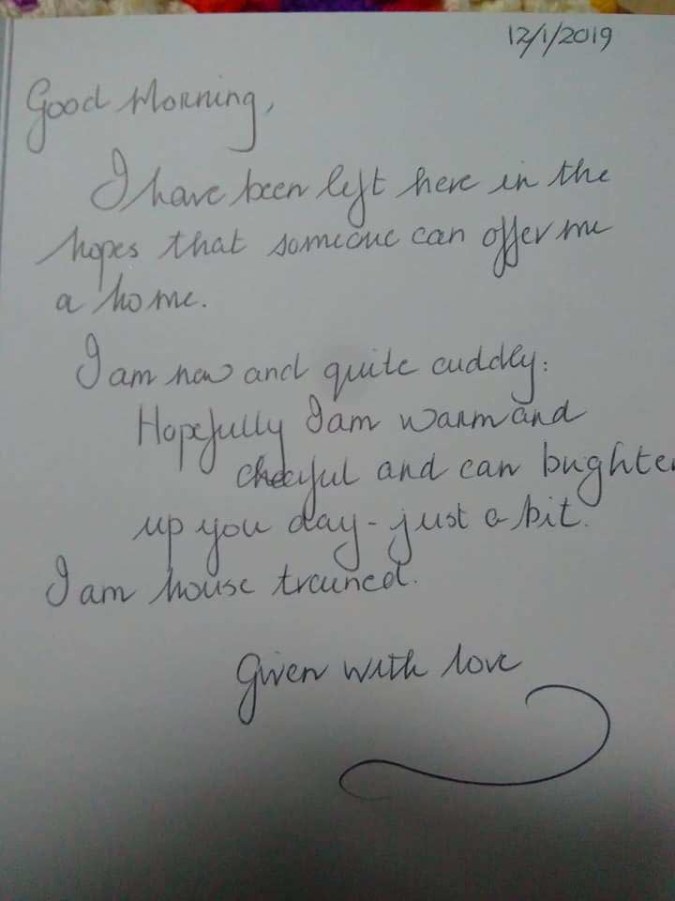 12/1/2019
Good Morning,
I have been left here in the
hopes that someone can offer me
a home.
I am new and quite cuddly.
Hopefully I am warm and
cheerful and can brighten
up you day - just a bit.
I am house trained.
Given with love